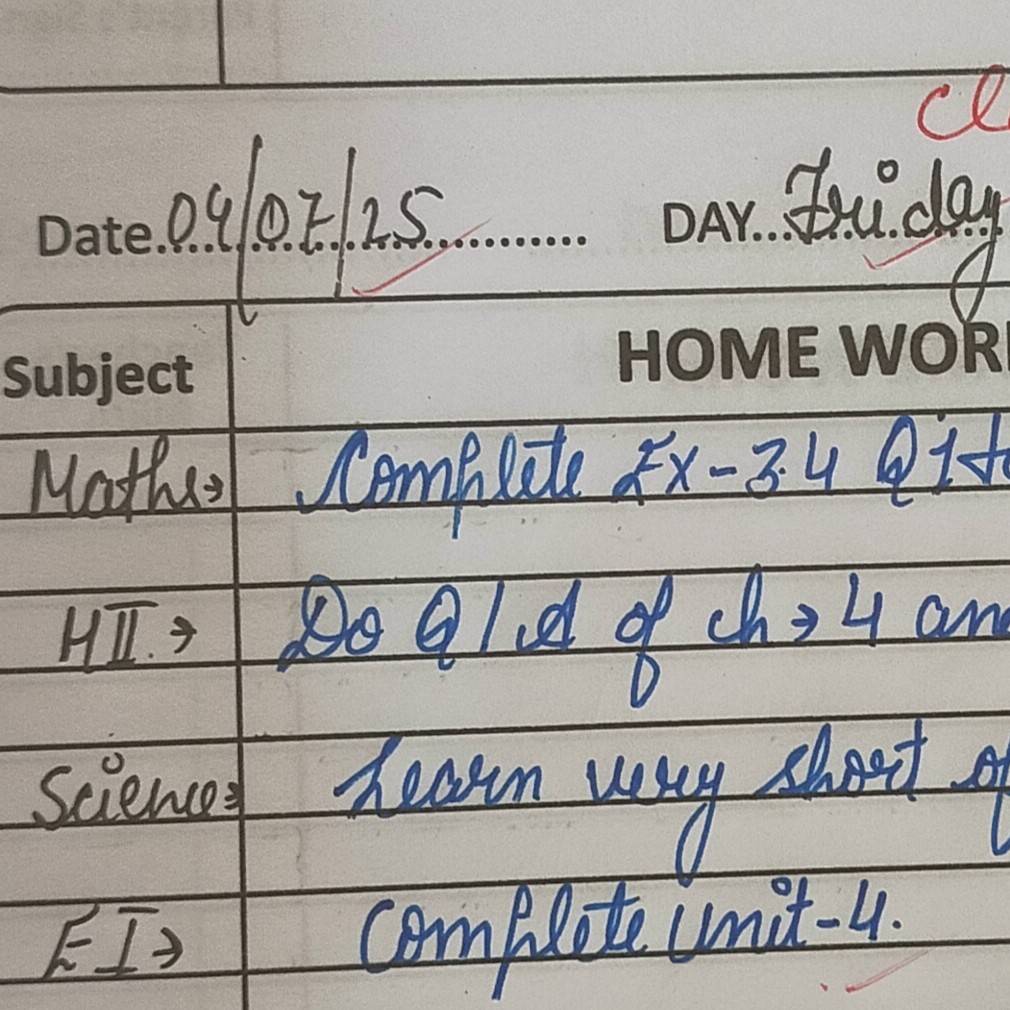 Date.04/07/25............ DAY...Friday
Subject HOME WOR
Maths→ Complete Ex-3.4 Q1 to
HII.→ Do Q1.d of ch→4 an
Science→ Learn very short of
EI→ Complete Unit-4.